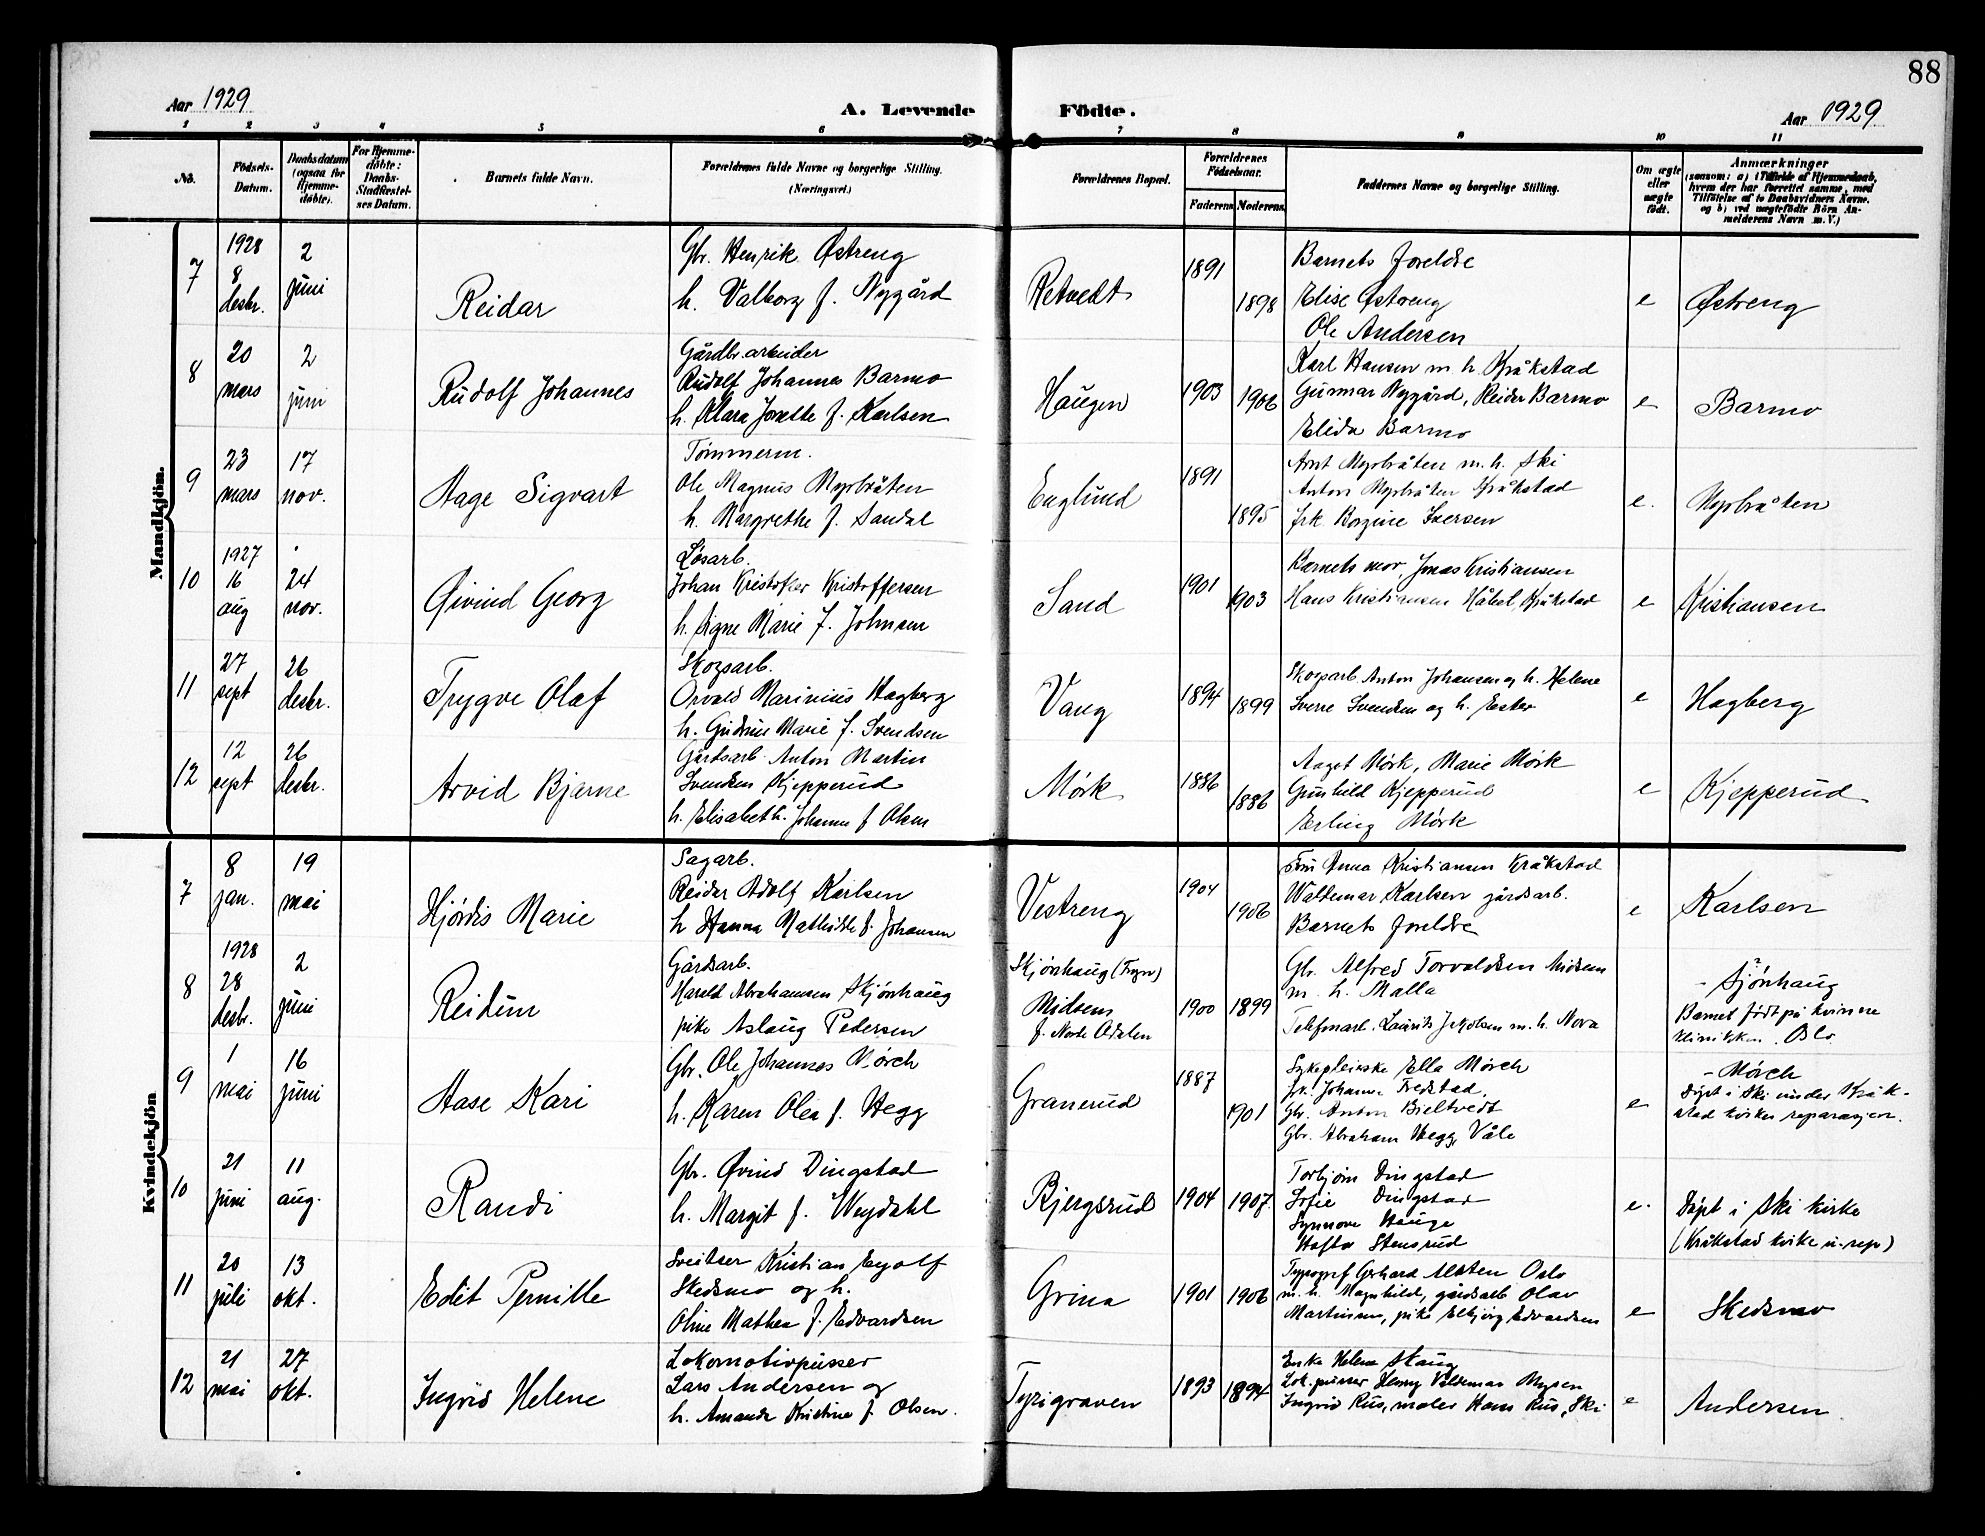 88
Aar 1929
A. Levende
Födte.
Aar 1929
1 2 3 4 5 6 7 8 9 10 11
No.
Födsels-
Datum.
Daabsdatum
(ogsaa for
Hjemme-
döbte).
For Hjemme-
döbte:
Daabs-
Stadfæstel-
ses Datum.
Barnets fulde Navn.
Forældrenes fulde Navne og borgerlige Stilling.
(Næringsvei.)
Forældrenes Bopæl.
Forældrenes
Födselsaar.
Faderens Moderens
Faddernes Navne og borgerlige Stilling.
Om ægte
eller
uægte
födt.
Anmærkninger
(saasom: a) i Tilfælde af Hjemmedaab,
hvem der har forrettet samme, med
Tilföielse af to Daabsvidners Navne,
og b) ved uægtefödte Börn An-
melderens Navn m. V.)
Mandkjön.
7
1928
8
desbr.
2
juni
Reidar
Gbr. Henrik Østreng
h. Valborg f. Nygård
Retvedt
1891
1898
Barnets foreldre
Elise Østreng
Ole Andersen
e
Østreng
8
20
mars
2
juni
Rudolf Johannes
Gårdbr.arbeider
Rudolf Johannes Barmo
h. Klara Josette f. Karlsen
Haugen
1903
1906
Karl Hansen m. h. Kråkstad
Gunnar Nygård, Reidar Barmo
Elida Barmo
e
Barmo
9
23
mars
17
nov.
Aage Sigvart
Tömmerm.
Ole Magnus Myrbråten
h. Margrethe f. Sandal
Englund
1891
1895
Arnt Myrbråten m. h. Ski
Anton Myrbråten Kråkstad
frk. Borgine Iversen
e.
Myrbråten
10
1927
16
aug
24
nov.
Øivind Georg
Løsarb.
Johan Kristofer Kristoffersen
h. Signe Marie f. Johnsen
Sand
1901
1903
Barnets mor, Jonas Kristiansen
Hans Kristiansen Håbet, Kråkstad
e
Kristiansen
11
27
sept
26
desbr.
Trygve Olaf
Skogsarb.
Osvald Marinius Hagberg
h. Gudrun Marie f. Svendsen
Vang
1894
1899
Skogsarb. Anton Johansen og h. Helene
Sverre Svendsen og h. Ester
e
Hagberg
12
12
sept
26
desbr.
Arvid Bjarne
Gårdsarb. Anton Martin
Svendsen Kjepperud
h. Elisabeth Johanne f Olsen
Mörk
1886
1886
Aagot Mörk, Marie Mörk
Gunhild Kjepperud
Erling Mörk
e
Kjepperud
Kvindekjön
7
8
jan.
19
mai
Hjördis Marie
Sagarb.
Reidar Adolf Karlsen
h Hanna Mathilde f. Johansen
Vestreng
1904
1906
Fru Anna Kristiansen Kråkstad
Waldemar Karlsen gårdsarb.
Barnets foreldre
e
Karlsen
8
1928
28
desbr.
2
juni
Reidun
Gårdsarb.
Harald Abrahamsen Skjønhaug
pike Aslaug Pedersen
Skjønhaug (Trygn)
Midsem
f. Nordre Odalen
1900
1899
Gbr. Alfred Torvaldsen Midsem
m. h. Malla
Telefonarb. Laurits Jakobsen m. h. Nora
- Sjönhaug
Barnet födt på kvinne
klinikken. Oslo
9
1
mai
16
juni
Aase Kari
Gbr. Ole Johannes Mörch
h. Karen Olea f. Hegg
Granerud
1887
1901
Sykepleierske Ella Mörch
frk. Johanne Tredstad,
Gbr. Anton Bieltvedt
Gbr. Abraham Hegg Våle
e
- Mörch
Döpt i Ski under Kråk-
stad kirkes reparasjon.
10
21
juni
11
aug.
Randi
Gbr. Øvind Dingstad
h. Margit f. Weydahl
Bjergsrud
1904
1907.
Torbjörn Dingstad
Sofie Dingstad
Synnøve Hauge
Haftor Stensrud
e.
Döpt i Ski kirke
(Kråkstad kirke u. rep)
11
20
juli
13
okt.
Edit Pernille
Sveitser Kristian Eyolf
Skedsmo og h.
Oline Mathea f. Edvardsen
Grina
1901
1906
Typograf Gerhard Alsten Oslo
m. h. Magnhild, gårdsarb Olav
Martinsen, pike Elbjørg Edvardsen
e
Skedsmo
12
21
mai
27
okt.
Ingrid Helene
Lokomotivpusser
Lars Andersen og
h. Amanda Kristine f. Olsen.
Tyrigraven
1893
1894
Enke Helene Skaug
Lok.pusser Henry Valdemar Mysen
Ingrid Rus, maler Hans Rus, Ski
e
Andersen